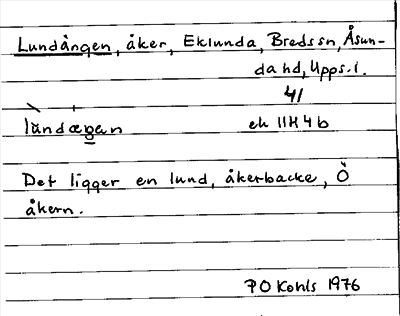 Lundängen, åker, Eklunda, Breds sn, Åsun-
da hd, Upps. l.
41
lŭndæŋen
ek 11H 4b
Det ligger en lund, åkerbacke, Ö
åkern.
PO Kohls 1976